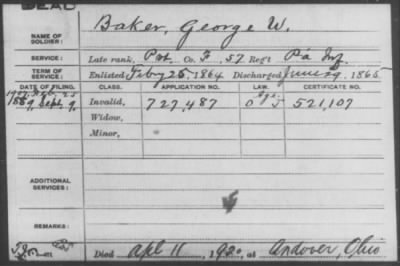 DEAD
Baker, George W.
NAME OF SOLDIER:
SERVICE: Late rank, Pvt. Co. F, 57 Reg't Pa Inf.
TERM OF SERVICE: Enlisted Feby 25, 1864, Discharged June 29, 1865
DATE OF FILING. CLASS. APPLICATION NO. LAW. CERTIFICATE NO.
1889, Sept. 9, Invalid, 727,487 521,107
Widow,
Minor,
ADDITIONAL SERVICES:
REMARKS:
Died Apl 11, 1920, at Andover, Ohio